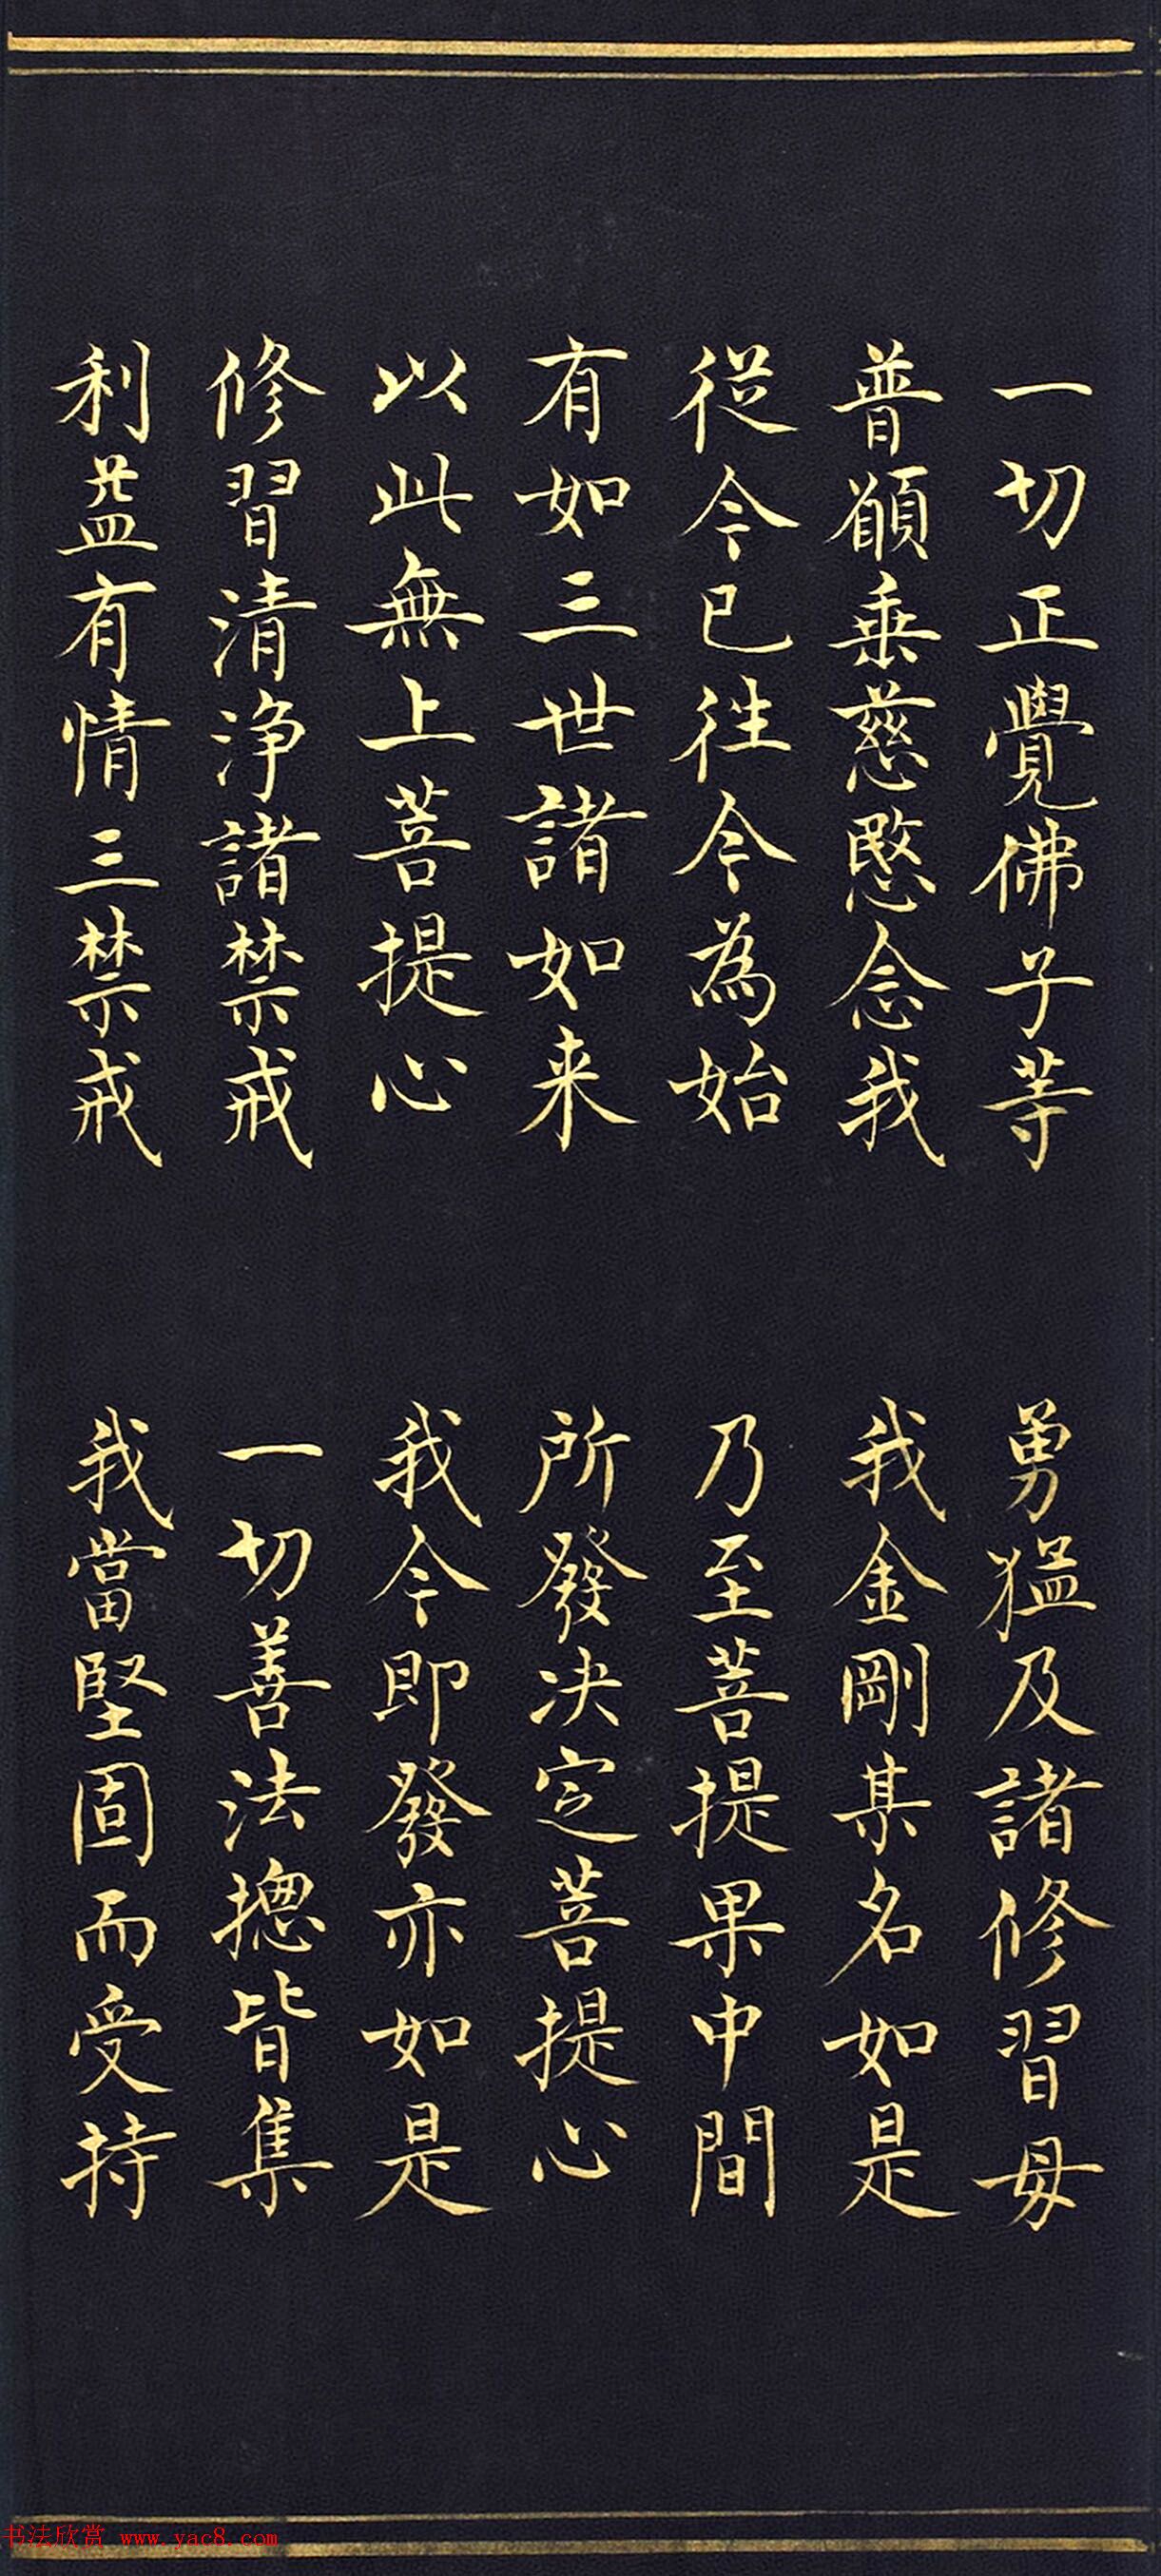 一切正覺佛子等
勇猛及諸修習毋
普願乗慈愍念我
我金剛某名如是
從今已往今為始
乃至菩提果中間
有如三世諸如来
所發决定菩提心
以此無上菩提心
我今即發亦如是
修習清淨諸禁戒
一切善法揔皆集
利益有情三禁戒
我當堅固而受持
书法欣赏 www.yac8.com